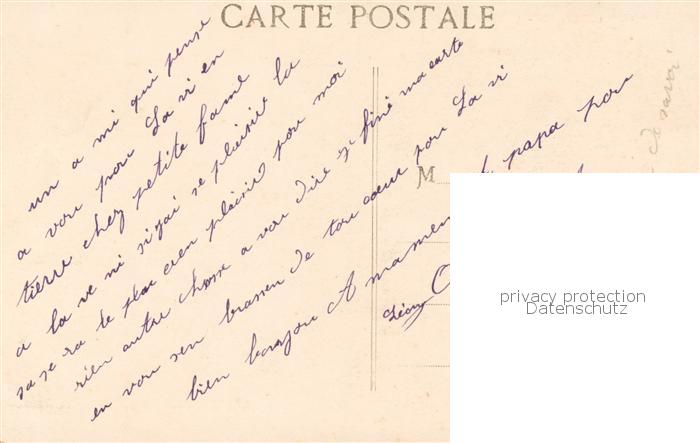 CARTE POSTALE
un a mi qui pense
a vou pour La vi en
tierre chez petite fame
a la ve ni si jai se plaisire la
sa se ra le plu cien plaisires pour moi
rien autre chosse a vou dire je fini ma carte
en vou sen brassen de tou coeur pou La vi
bien bonjou A maman papa pou
M
Léon
privacy protection
Datenschutz